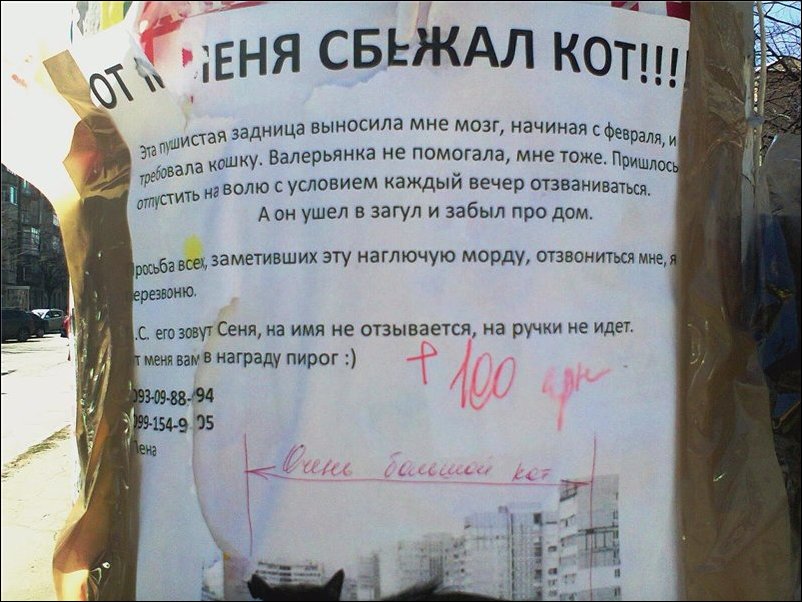 ОТ МЕНЯ СБЕЖАЛ КОТ!!!!
Эта пушистая задница выносила мне мозг, начиная с февраля, и
требовала кошку. Валерьянка не помогала, мне тоже. Пришлось
отпустить на волю с условием каждый вечер отзваниваться.
А он ушел в загул и забыл про дом.
росьба всех, заметивших эту наглючую морду, отзвониться мне, я
ерезвоню.
.С. его зовут Сеня, на имя не отзывается, на ручки не идет.
т меня вам в награду пирог :)
+ 100 грн
093-09-88- 94
099-154-9 05
Лена
Очень большой кот